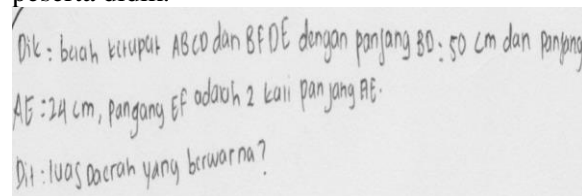 peserta didik.
Dik : belah ketupat ABCD dan BFDE dengan panjang BD : 50 cm dan panjang
AE : 24 cm, pangang EF adalah 2 kali panjang AE.
Dit : luas Daerah yang berwarna?